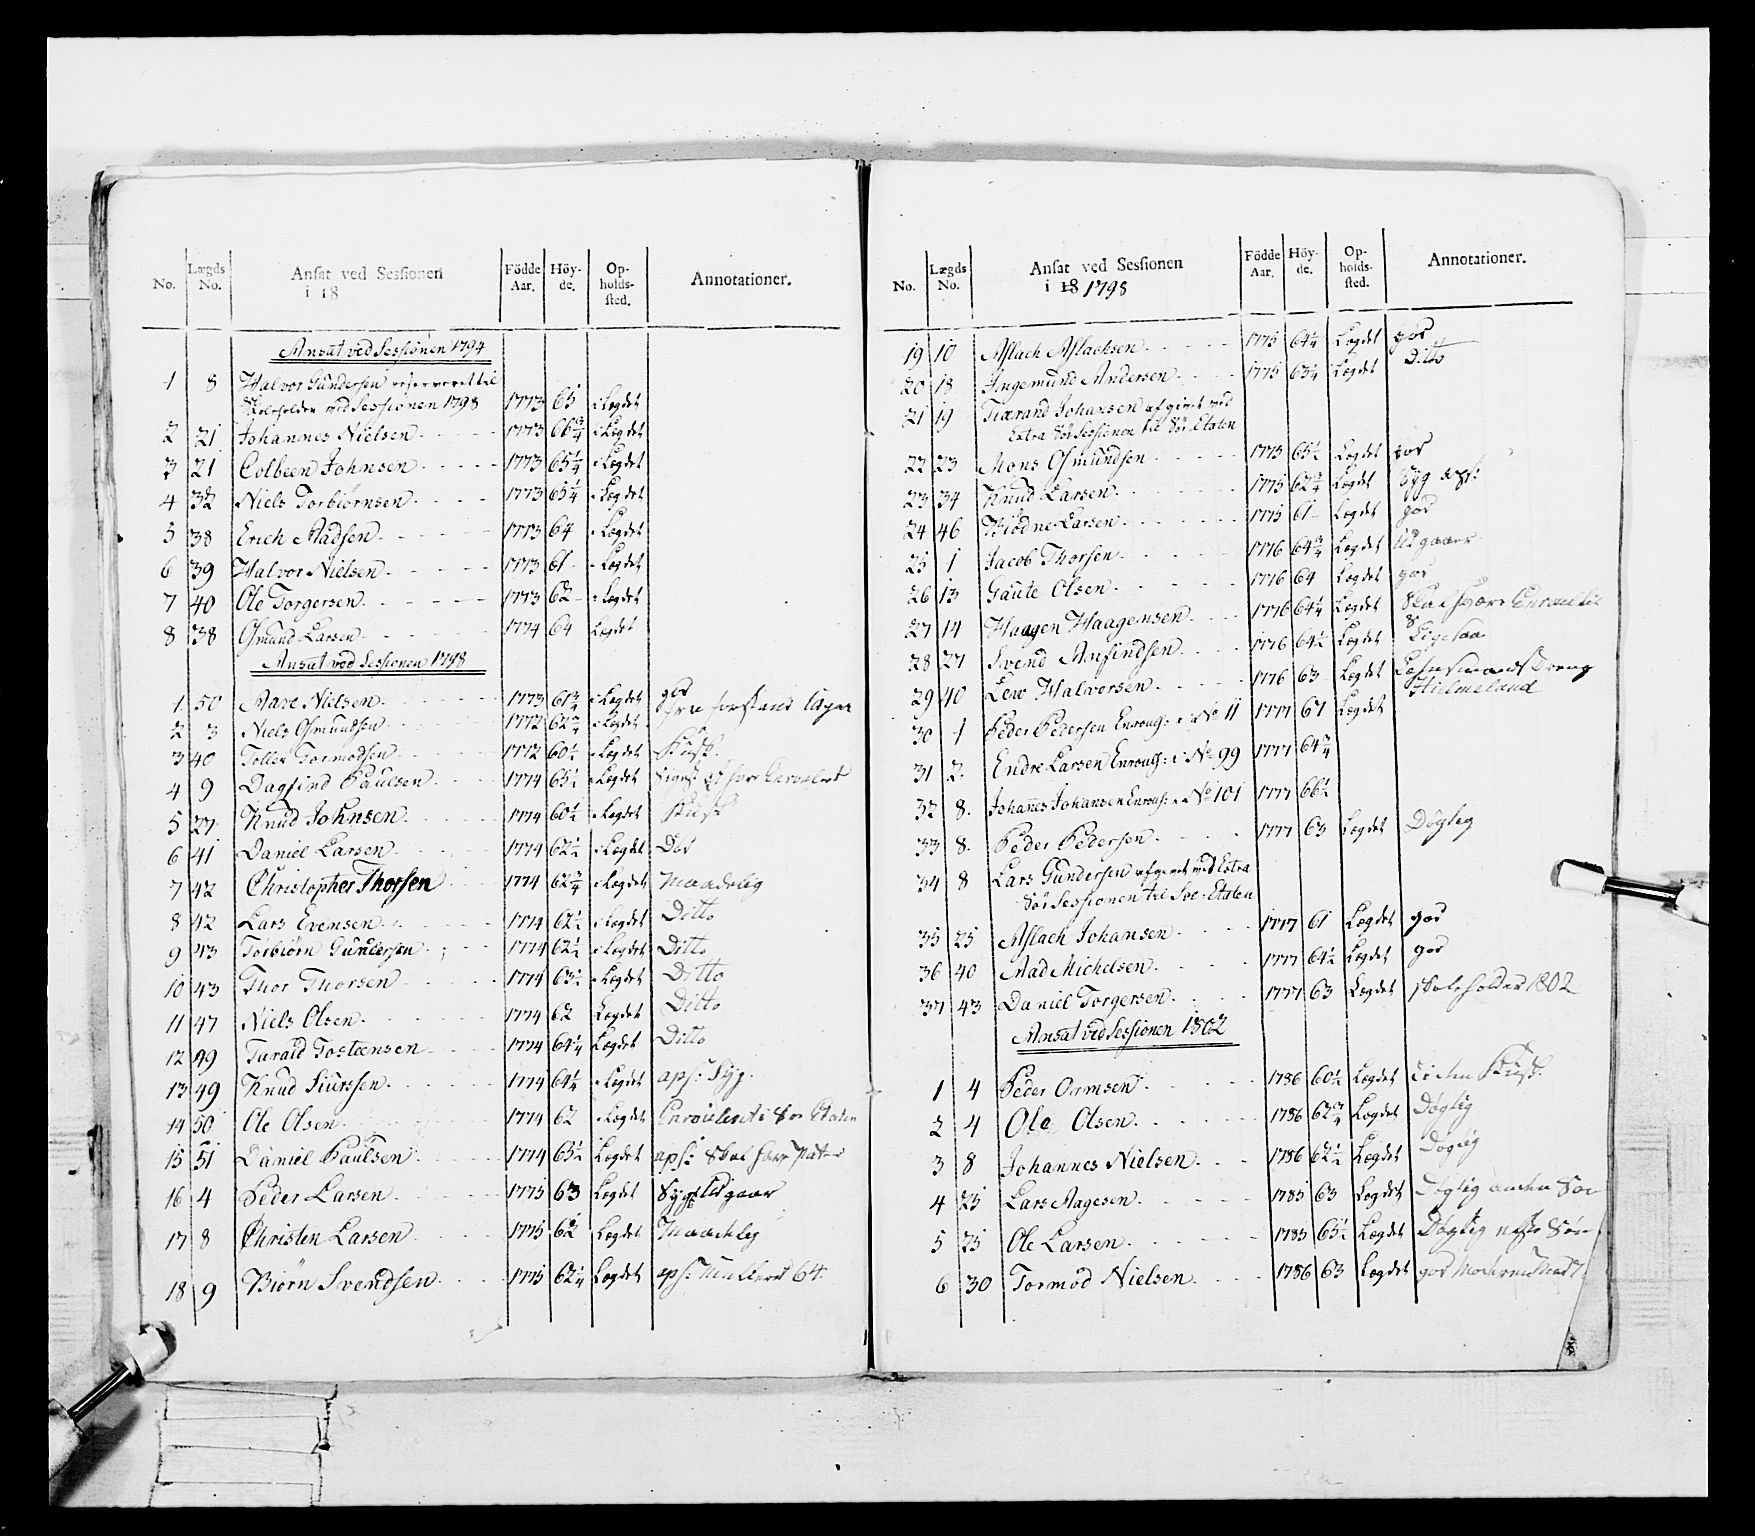 No. Lægds No. Ansat ved Sessionen i 18 Födde Aar. Höyde. Opholdssted. Annotationer.
Ansat ved Sessionen 1794
1 8 Halvor Gundersen reserveret til
Skoleholder ved Sessionen 1798 1773 65 i Lægdet
2 21 Johannes Nielsen 1773 66 3/4 i Lægdet
3 21 Colbeen Johnsen 1773 65 1/4 i Lægdet
4 32 Niels Torbiørnsen 1773 65 1/4 i Lægdet
5 38 Erich Madsen 1773 64 i Lægdet
6 39 Halvor Nielsen 1773 61 i Lægdet
7 40 Ole Torgersen 1773 62 i Lægdet
8 38 Osmund Larsen 1774 64 Lægdet
Ansat ved Sessionen 1798
1 50 Aare Nielsen 1773 61 3/4 i Lægdet god
2 3 Niels Osmundsen 1772 62 3/4 i Lægdet
3 40 Toller Tormodsen 1772 60 1/2 i Lægdet
4 9 Dagfind Paulsen 1774 65 1/2 i Lægdet
5 27 Knud Johnsen 1774 60 1/2 i Lægdet
6 41 Daniel Larsen 1774 62 1/2 i Lægdet
7 42 Christopher Thorsen 1774 62 3/4 i Lægdet Maadelig
8 42 Lars Evensen 1774 62 1/2 i Lægdet Ditto
9 43 Torbiørn Gundersen 1774 62 1/2 i Lægdet Ditto
10 43 Thor Thorsen 1774 63 1/2 i Lægdet Ditto
11 47 Niels Olsen 1774 62 Lægdet Ditto
12 49 Turald Tosteensen 1774 64 1/4 Lægdet Ditto
13 49 Knud Siursen 1774 64 1/4 i Lægdet aps: Syg.
14 50 Ole Olsen 1774 62 i Lægdet Enroulleret i Søe Etaten
15 51 Daniel Paulsen 1774 65 1/2 Lægdet aps:
16 4 Peder Larsen 1775 63 Lægdet Syg Udgaar
17 8 Christen Larsen 1775 62 Lægdet Maadelig
18 9 Biørn Svendsen 1775 62 1/4 Lægdet aps:
No. Lægds No. Ansat ved Sessionen i 18 1798 Födde Aar. Höyde. Opholdssted. Annotationer.
19 10 Aslach Aslachsen 1775 64 1/4 Lægdet god
20 18 Ingemund Andersen 1775 63 1/4 Lægdet Ditto
21 19 Tiærand Johansen afgivet ved
Extra Søe Sessionen til Søe-Etaten
22 23 Mons Osmundsen 1775 65 1/2 Lægdet god
23 34 Knud Larsen 1775 62 3/4 Lægdet Syg aps:
24 46 Biødne Larsen 1775 61 Lægdet god
25 1 Jacob Thorsen 1776 64 3/4 Lægdet Udgaaer
26 13 Gaute Olsen 1776 64 Lægdet god
27 14 Haagen Haagensen 1776 64 1/4 Lægdet
28 27 Svend Anfindsen 1776 64 1/2 Lægdet Ligesaa
29 40 Lew Halvorsen 1776 63 Lægdet Lehnsmands Dreng
Hielmeland
30 1 Peder Pedersen Enroul: i No 11 1777 67 Lægdet
31 2. Endre Larsen Enroul: i No 99 1777 64 3/4
32 8. Johannes Johansen Enroul: i No 101 1777 66 1/2
33 8. Peder Pedersen 1777 63 Lægdet Døgtig
34 8 Lars Gundersen afgivet ved Extra
Søe Sessionen til Søe-Etaten
35 25 Aslach Johansen 1777 61 Lægdet god
36 40 Aad Michelsen 1777 64 1/2 Lægdet god
37 43 Daniel Torgersen 1777 63 Lægdet Skoleholder 1802
Ansat ved Sessionen 1802
1 4 Peder Ormsen 1786 60 1/2 Lægdet
2 4 Ole Olsen 1786 62 3/4 Lægdet Døgtig
3 8 Johannes Nielsen 1786 62 1/2 Lægdet Døgtig
4 25 Lars Aagesen 1785 63 Lægdet Døgtig
5 25 Ole Larsen 1785 65 1/2 Lægdet Døgtig
6 30 Tormod Nielsen 1786 63 Lægdet god